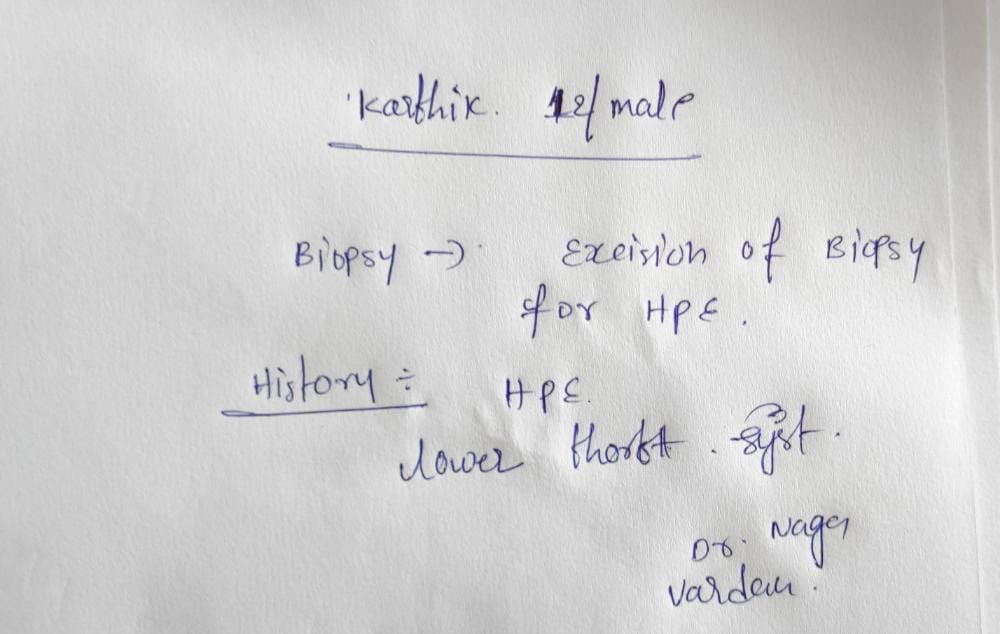 Karthik. 12/ male
Biopsy → Exeision of Biopsy
for HPE.
History ÷ HPE.
lower . syst.
Dr. Naga
Vardem.